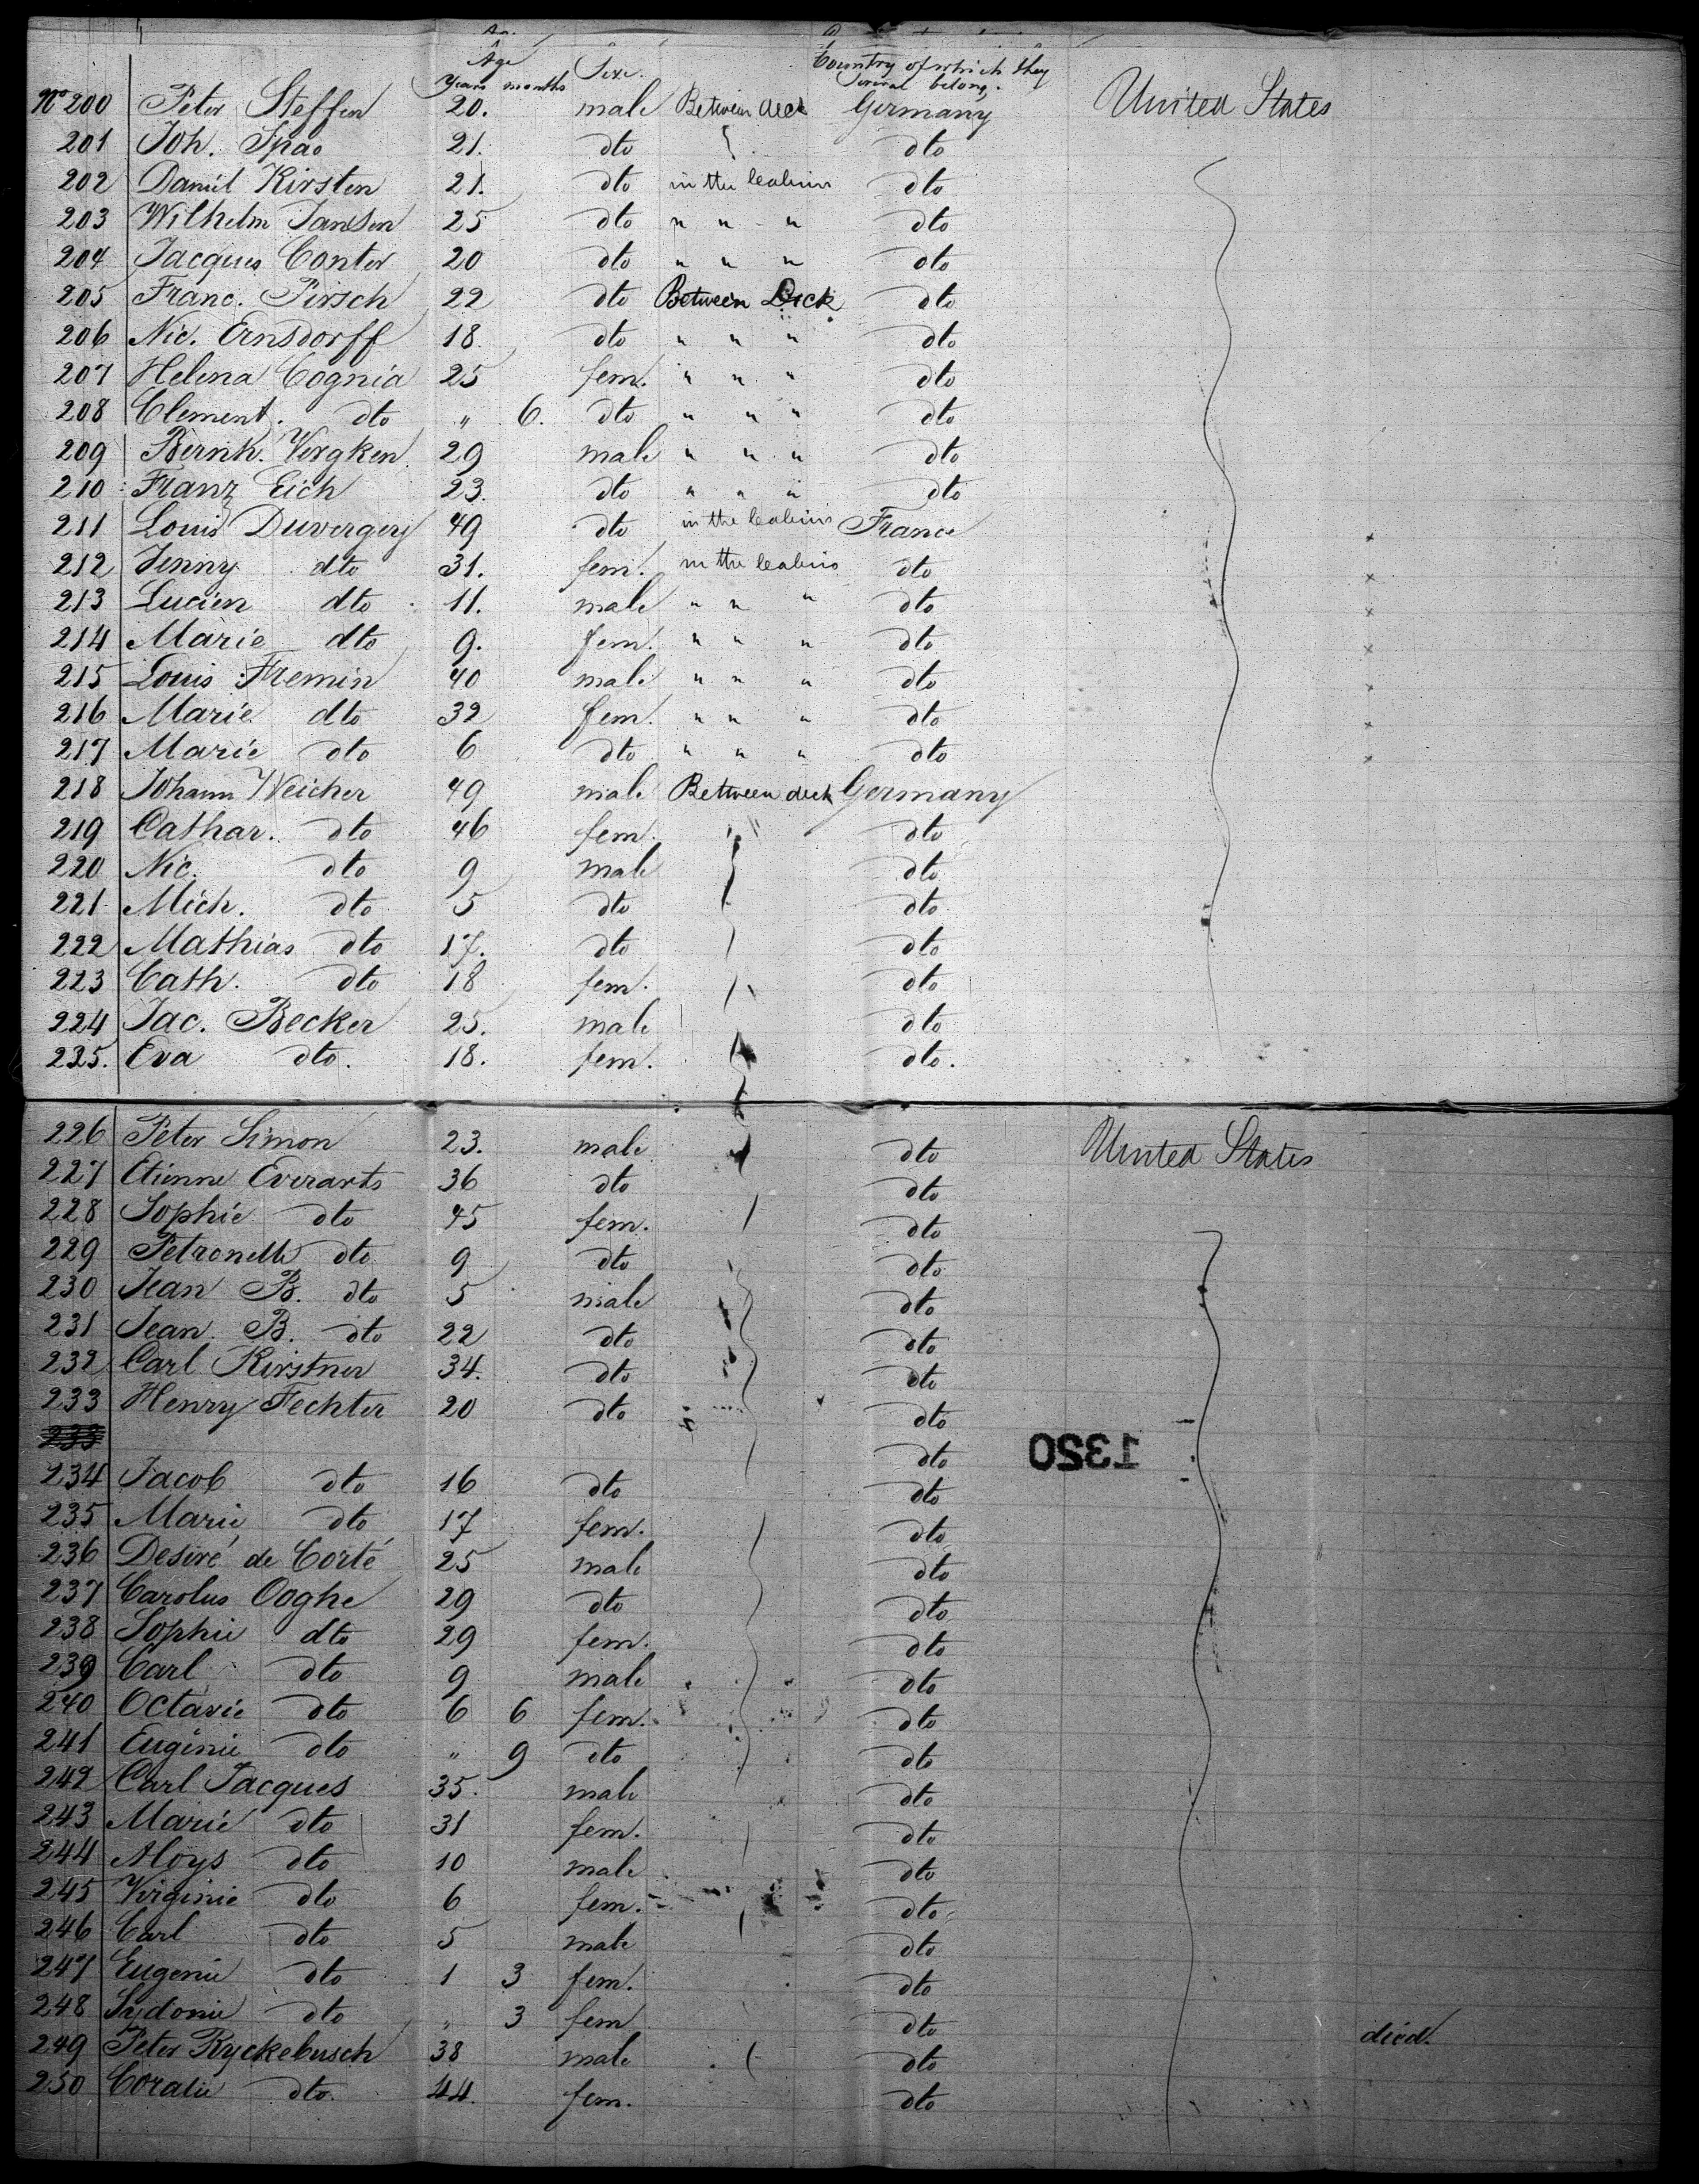 Age Sexe. Country of which they
Years months several belong.
No 200 Peter Steffen 20. male Between deck Germany United States
201 Joh. Spao 21. dto dto
202 Daniel Kirsten 21. dto in the Cabins dto
203 Wilhelm Jansen 25 dto " " " dto
204 Jacques Conter 20 dto " " " dto
205 Franc. Pirsch 22 dto Between Deck dto
206 Nic. Ernsdorff 18. dto " " " dto
207 Helena Cognia 25 fem. " " " dto
208 Clement. dto " 6. dto " " " dto
209 Bernh. Vergken 29 male " " " dto
210 Franz Eich 23. dto " " " dto
211 Louis Duvergey 49 dto in the Cabins France
212 Jenny dto 31. fem. in the Cabins dto
213 Lucien dto 11. male " " " dto
214 Marie dto 9. fem. " " " dto
215 Louis Fremin 40 male " " " dto
216 Marie dto 32 fem. " " " dto
217 Marie dto 6 dto " " " dto
218 Johann Weicher 49 male Between deck Germany
219 Cathar. dto 46 fem. dto
220 Nic. dto 9 male dto
221 Mich. dto 5 dto dto
222 Mathias dto 17. dto dto
223 Cath. dto 18 fem. dto
224 Jac. Becker 25. male dto
225. Eva dto. 18. fem. dto.
226 Peter Simon 23. male dto United States
227 Etienne Everarts 36 dto dto
228 Sophie dto 45 fem. dto
229 Petronelle dto 9 dto dto
230 Jean B. dto 5 male dto
231 Jean B. dto 22 dto dto
232 Carl Kirstner 34. dto dto
233 Henry Fechter 20 dto dto
233 dto 1320
234 Jacob dto 16 dto dto
235 Marie dto 17 fem. dto
236 Desiré de Corté 25 male dto
237 Carolus Ooghe 29 dto dto
238 Sophie dto 29 fem. dto
239 Carl dto 9 male dto
240 Octavie dto 6 6 fem. dto
241 Eugénie dto " 9 dto dto
242 Carl Jacques 35. male dto
243 Marie dto 31 fem. dto
244 Aloys dto 10 male dto
245 Virginie dto 6 fem. dto
246 Carl dto 5 male dto
247 Eugenie dto 1 3 fem. dto
248 Sydonie dto " 3 fem dto died.
249 Peter Ryckebusch 38 male dto
250 Coralie dto. 44. fem. dto